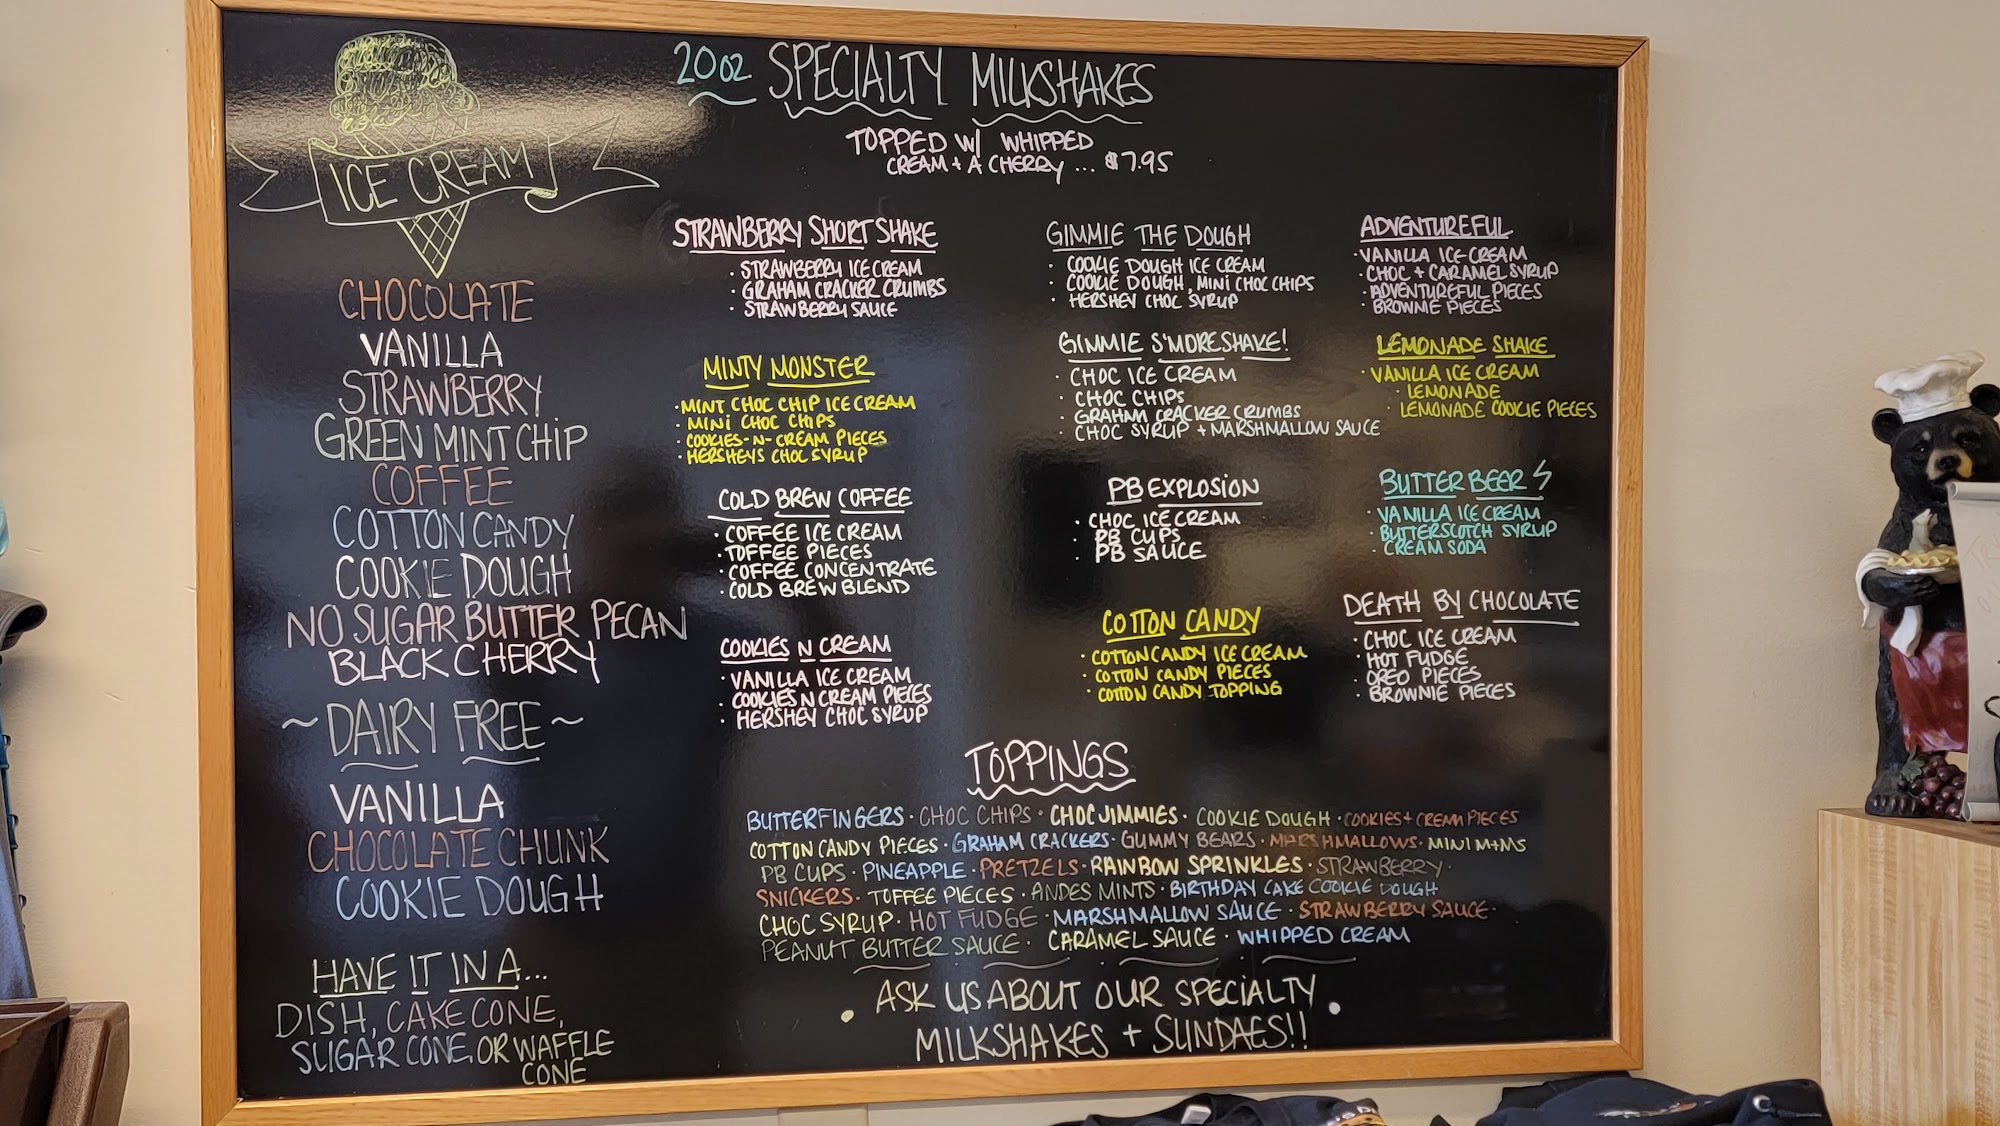 ICE CREAM
CHOCOLATE
VANILLA
STRAWBERRY
GREEN MINT CHIP
COFFEE
COTTON CANDY
COOKIE DOUGH
NO SUGAR BUTTER PECAN
BLACK CHERRY
~DAIRY FREE~
VANILLA
CHOCOLATE CHUNK
COOKIE DOUGH
HAVE IT IN A...
DISH, CAKE CONE,
SUGAR CONE, OR WAFFLE
CONE
20oz SPECIALTY MILKSHAKES
TOPPED W/ WHIPPED
CREAM + A CHERRY ... $7.95
STRAWBERRY SHORT SHAKE
· STRAWBERRY ICE CREAM
· GRAHAM CRACKER CRUMBS
· STRAWBERRY SAUCE
MINTY MONSTER
· MINT CHOC CHIP ICE CREAM
· MINI CHOC CHIPS
· COOKIES-N-CREAM PIECES
· HERSHEYS CHOC SYRUP
COLD BREW COFFEE
· COFFEE ICE CREAM
· TOFFEE PIECES
· COFFEE CONCENTRATE
· COLD BREW BLEND
COOKIES N CREAM
· VANILLA ICE CREAM
· COOKIES N CREAM PIECES
· HERSHEY CHOC SYRUP
GIMMIE THE DOUGH
· COOKIE DOUGH ICE CREAM
· COOKIE DOUGH, MINI CHOC CHIPS
· HERSHEY CHOC SYRUP
GIMMIE S'MORESHAKE!
· CHOC ICE CREAM
· CHOC CHIPS
· GRAHAM CRACKER CRUMBS
· CHOC SYRUP + MARSHMALLOW SAUCE
PB EXPLOSION
· CHOC ICE CREAM
· PB CUPS
· PB SAUCE
COTTON CANDY
· COTTON CANDY ICE CREAM
· COTTON CANDY PIECES
· COTTON CANDY TOPPING
ADVENTUREFUL
· VANILLA ICE CREAM
· CHOC + CARAMEL SYRUP
· ADVENTUREFUL PIECES
· BROWNIE PIECES
LEMONADE SHAKE
· VANILLA ICE CREAM
· LEMONADE
· LEMONADE COOKIE PIECES
BUTTER BEER
· VANILLA ICE CREAM
· BUTTERSCOTCH SYRUP
· CREAM SODA
DEATH BY CHOCOLATE
· CHOC ICE CREAM
· HOT FUDGE
· OREO PIECES
· BROWNIE PIECES
TOPPINGS
BUTTERFINGERS · CHOC CHIPS · CHOC JIMMIES · COOKIE DOUGH · COOKIES + CREAM PIECES
COTTON CANDY PIECES · GRAHAM CRACKERS · GUMMY BEARS · MARSHMALLOWS · MINI M+MS
PB CUPS · PINEAPPLE · PRETZELS · RAINBOW SPRINKLES · STRAWBERRY ·
SNICKERS · TOFFEE PIECES · ANDES MINTS · BIRTHDAY CAKE COOKIE DOUGH
CHOC SYRUP · HOT FUDGE · MARSHMALLOW SAUCE · STRAWBERRY SAUCE ·
PEANUT BUTTER SAUCE · CARAMEL SAUCE · WHIPPED CREAM
· ASK US ABOUT OUR SPECIALTY ·
MILKSHAKES + SUNDAES!!